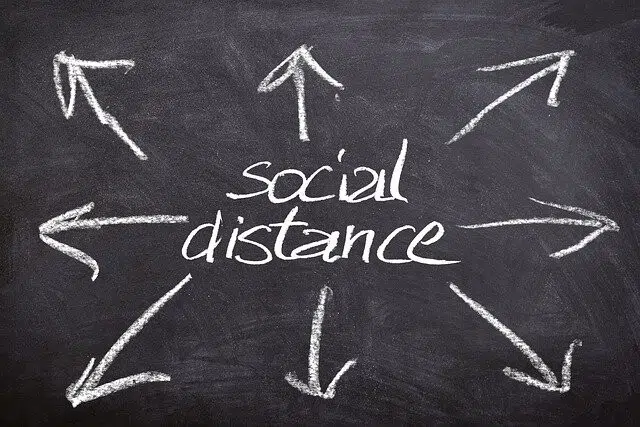 social
distance